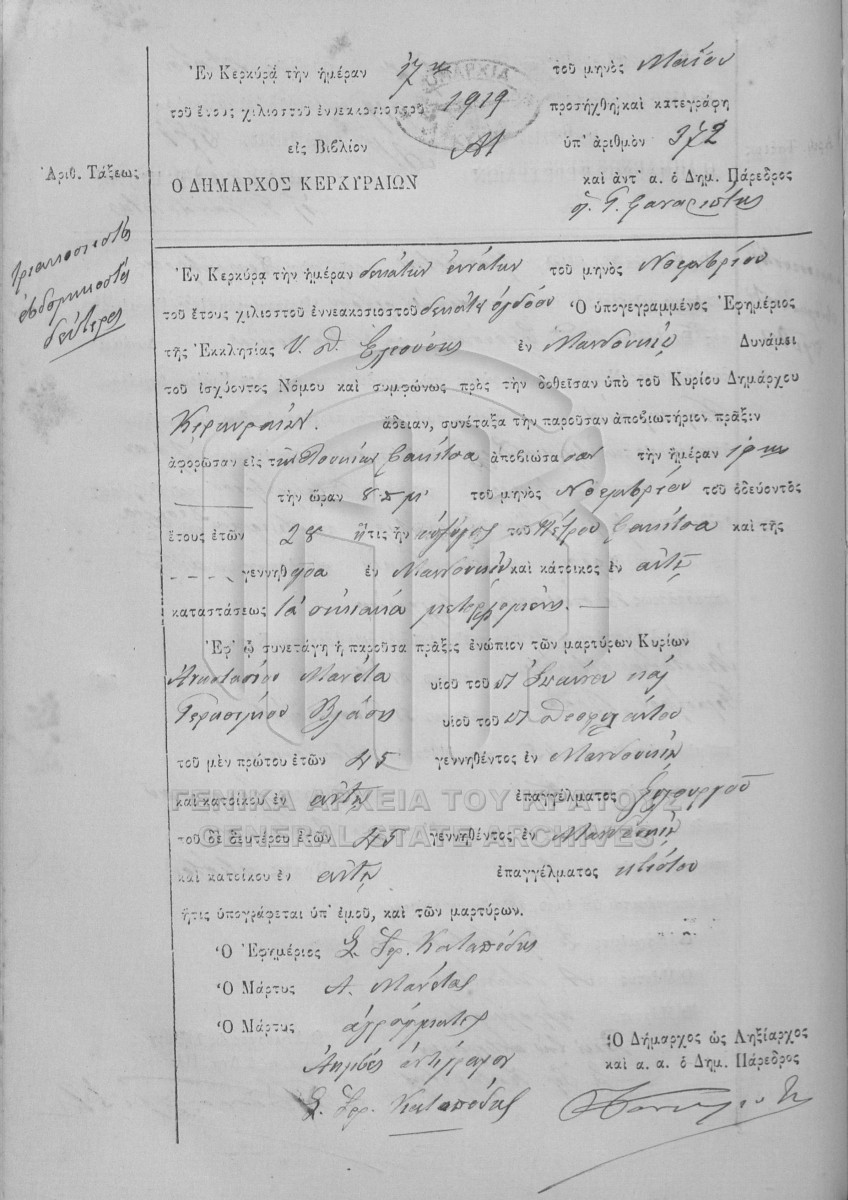 Ἐν Κερκύρᾳ τὴν ἡμέραν 17ῃ τοῦ μηνὸς Μαΐου
τοῦ ἔτους χιλιοστοῦ ἐννεακοσιοστοῦ 1919 προσήχθη καὶ κατεγράφη
εἰς Βιβλίον Α1 ὑπ' ἀριθμὸν 372
Ἀριθ. Τάξεως
Ο ΔΗΜΑΡΧΟΣ ΚΕΡΚΥΡΑΙΩΝ καὶ ἀντ' α. ὁ Δημ. Πάρεδρος
τριακοσιοστὸς
ἑβδομηκοστὸς
δεύτερος
Ἐν Κερκύρᾳ τὴν ἡμέραν δεκάτην ἐννάτην τοῦ μηνὸς Νοεμβρίου
τοῦ ἔτους χιλιοστοῦ ἐννεακοσιοστοῦ δεκάτου ὀγδόου Ὁ ὑπογεγραμμένος Ἐφημέριος
τῆς Ἐκκλησίας Υ. Θ. Ἐλεούσης ἐν Μανδουκίῳ Δυνάμει
τοῦ ἰσχύοντος Νόμου καὶ συμφώνως πρὸς τὴν δοθεῖσαν ὑπὸ τοῦ Κυρίου Δημάρχου
Κερκυραίων. ἄδειαν, συνέταξα τὴν παροῦσαν ἀποβιωτήριον πρᾶξιν
ἀφορῶσαν εἰς τὴν Λουκίαν ἀποβιώσασαν τὴν ἡμέραν
τὴν ὥραν 8 π μ τοῦ μηνὸς Νοεμβρίου τοῦ ὁδεύοντος
ἔτους ἐτῶν 28 ἥτις ἦν σύζυγος τοῦ Πέτρου καὶ τῆς
γεννηθεῖσα ἐν Μανδουκίῳ καὶ κάτοικος ἐν αὐτῷ
καταστάσεως τὰ οἰκιακὰ μετερχομένης.
Ἐφ' ᾧ συνετάγη ἡ παροῦσα πρᾶξις ἐνώπιον τῶν μαρτύρων Κυρίων
Ἀναστασίου Μανέτα υἱοῦ τοῦ Ἰωάννου καὶ
Γερασίμου Βλάση υἱοῦ τοῦ Θεοφυλάκτου
τοῦ μὲν πρώτου ἐτῶν 45 γεννηθέντος ἐν Μανδουκίῳ
καὶ κατοίκου ἐν αὐτῷ ἐπαγγέλματος ξυλουργοῦ
ΓΕΝΙΚΑ ΑΡΧΕΙΑ ΤΟΥ ΚΡΑΤΟΥΣ
GENERAL STATE ARCHIVES
τοῦ δὲ δευτέρου ἐτῶν 45 γεννηθέντος ἐν Μανδουκίῳ
καὶ κατοίκου ἐν αὐτῷ ἐπαγγέλματος κτίστου
ἥτις ὑπογράφεται ὑπ' ἐμοῦ, καὶ τῶν μαρτύρων.
Ὁ Ἐφημέριος Σ. Ἱερ. Καταπόδης
Ὁ Μάρτυς Α. Μανέτας
Ὁ Μάρτυς ἀγράμματος
Ἀκριβὲς ἀντίγραφον
Σ. Ἱερ. Καταπόδης
Ὁ Δήμαρχος ὡς Ληξίαρχος
καὶ α. α. ὁ Δημ. Πάρεδρος